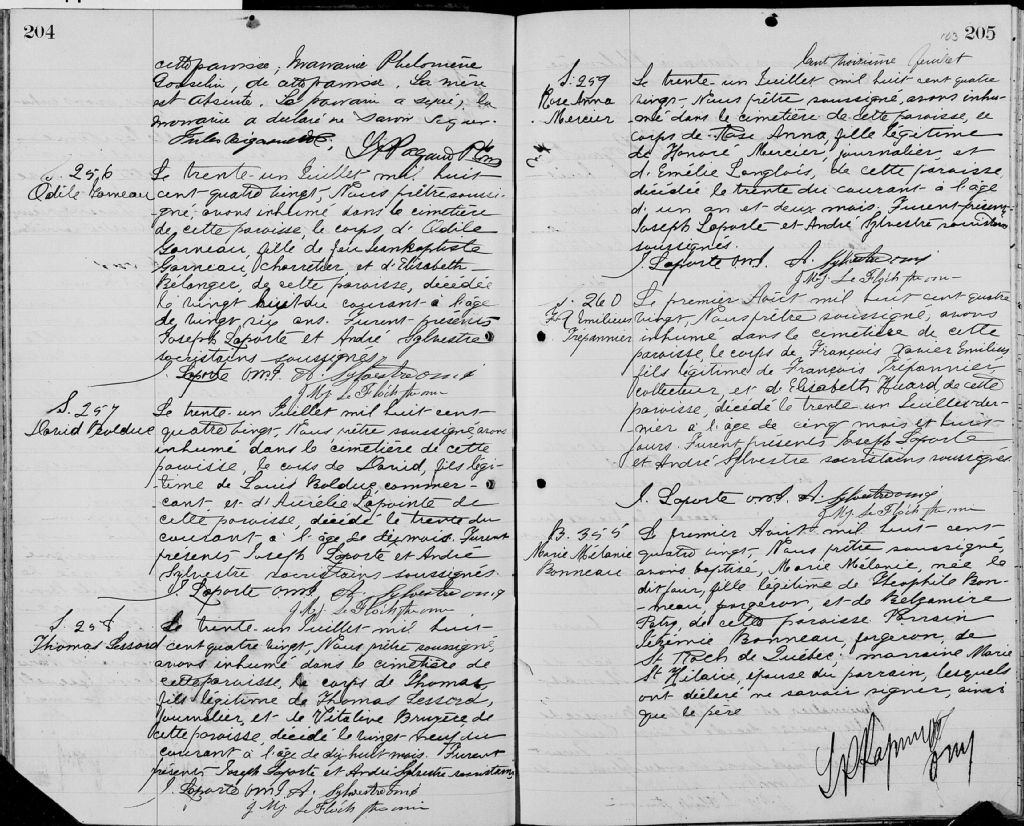 204
cette paroisse; marraine Philomène
Gosselin, de cette paroisse. La mère
est absente. Le parrain a signé, la
marraine a déclaré ne savoir signer.
S. 256
Odile Garneau
Le trente-un Juillet mil huit
cent-quatre vingt, Nous prêtre soussi-
gné, avons inhumé dans le cimetière
de cette paroisse le corps d'Odile
Garneau, fille de feu Jean Baptiste
Garneau, charretier, et d'Elisabeth
Bélanger, de cette paroisse, décédée
le vingt huit du courant à l'âge
de vingt six ans. Furent présents
Joseph Laporte et André Sylvestre
sacristains soussignés.
J. Laporte O.M.I. A. Sylvestre o.m.i
J Mj Le Floch ptre omi
S. 257
David Bolduc
Le trente-un Juillet mil huit cent-
quatre vingt, Nous prêtre soussigné avons
inhumé dans le cimetière de cette
paroisse, le corps de David, fils légi-
time de Louis Bolduc commer-
çant et d'Aurélie Lapointe de
cette paroisse, décédé le trente du
courant à l'âge de dix mois. Furent
présents Joseph Laporte et André
Sylvestre sacristains soussignés.
J. Laporte omi, A. Sylvestre o.m.i
J Mj Le Floch ptre omi
S. 258
Thomas Lessard
Le trente-un Juillet mil huit-
cent quatre vingt, Nous prêtre soussigné,
avons inhumé dans le cimetière de
cette paroisse, le corps de Thomas,
fils légitime de Thomas Lessard,
Journalier, et de Vitaline Bruyère de
cette paroisse décédé le vingt-neuf du
courant à l'âge de dix huit mois. Furent
présents Joseph Laporte et André Sylvestre sacristains
J Laporte O.M.I. A. Sylvestre omi
J Mj Le Floch ptre omi
103 205
Cent troisième feuillet
S. 259
Rose Anna
Mercier
Le trente-un Juillet mil huit cent quatre
vingt, Nous prêtre soussigné, avons inhu-
mé dans le cimetière de cette paroisse, le
corps de Rose Anna, fille légitime
de Honoré Mercier, journalier, et
d'Emélie Langlois, de cette paroisse
décédée le trente du courant à l'âge
d'un an et deux mois. Furent présents
Joseph Laporte et André Sylvestre sacristains
soussignés.
J. Laporte O.M.I. A. Sylvestre omi
J Mj Le Floch ptre omi
S. 260
Emilius
Trépannier
Le premier Août mil huit cent quatre
vingt, Nous prêtre soussigné, avons
inhumé dans le cimetière de cette
paroisse le corps de François Xavier Emilius
fils légitime de François Trépannier,
collecteur, et d'Elisabeth Huard de cette
paroisse, décédé le trente un Juillet der-
nier à l'âge de cinq mois et huit
jours. Furent présents Joseph Laporte
et André Sylvestre sacristains soussignés.
J. Laporte omi A. Sylvestre omi
J Mj Le Floch ptre omi
B. 355
Marie Mélanie
Bonneau
Le premier Août mil huit cent-
quatre vingt, Nous prêtre soussigné,
avons baptisé, Marie Mélanie, née le
dit jour, fille légitime de Théophile Bon-
neau, forgeron, et de
de cette paroisse Parrain
Jérémie Bonneau, forgeron, de
St Roch de Québec; marraine Marie
St Hilaire, épouse du parrain, lesquels
ont déclaré ne savoir signer, ainsi
que le père